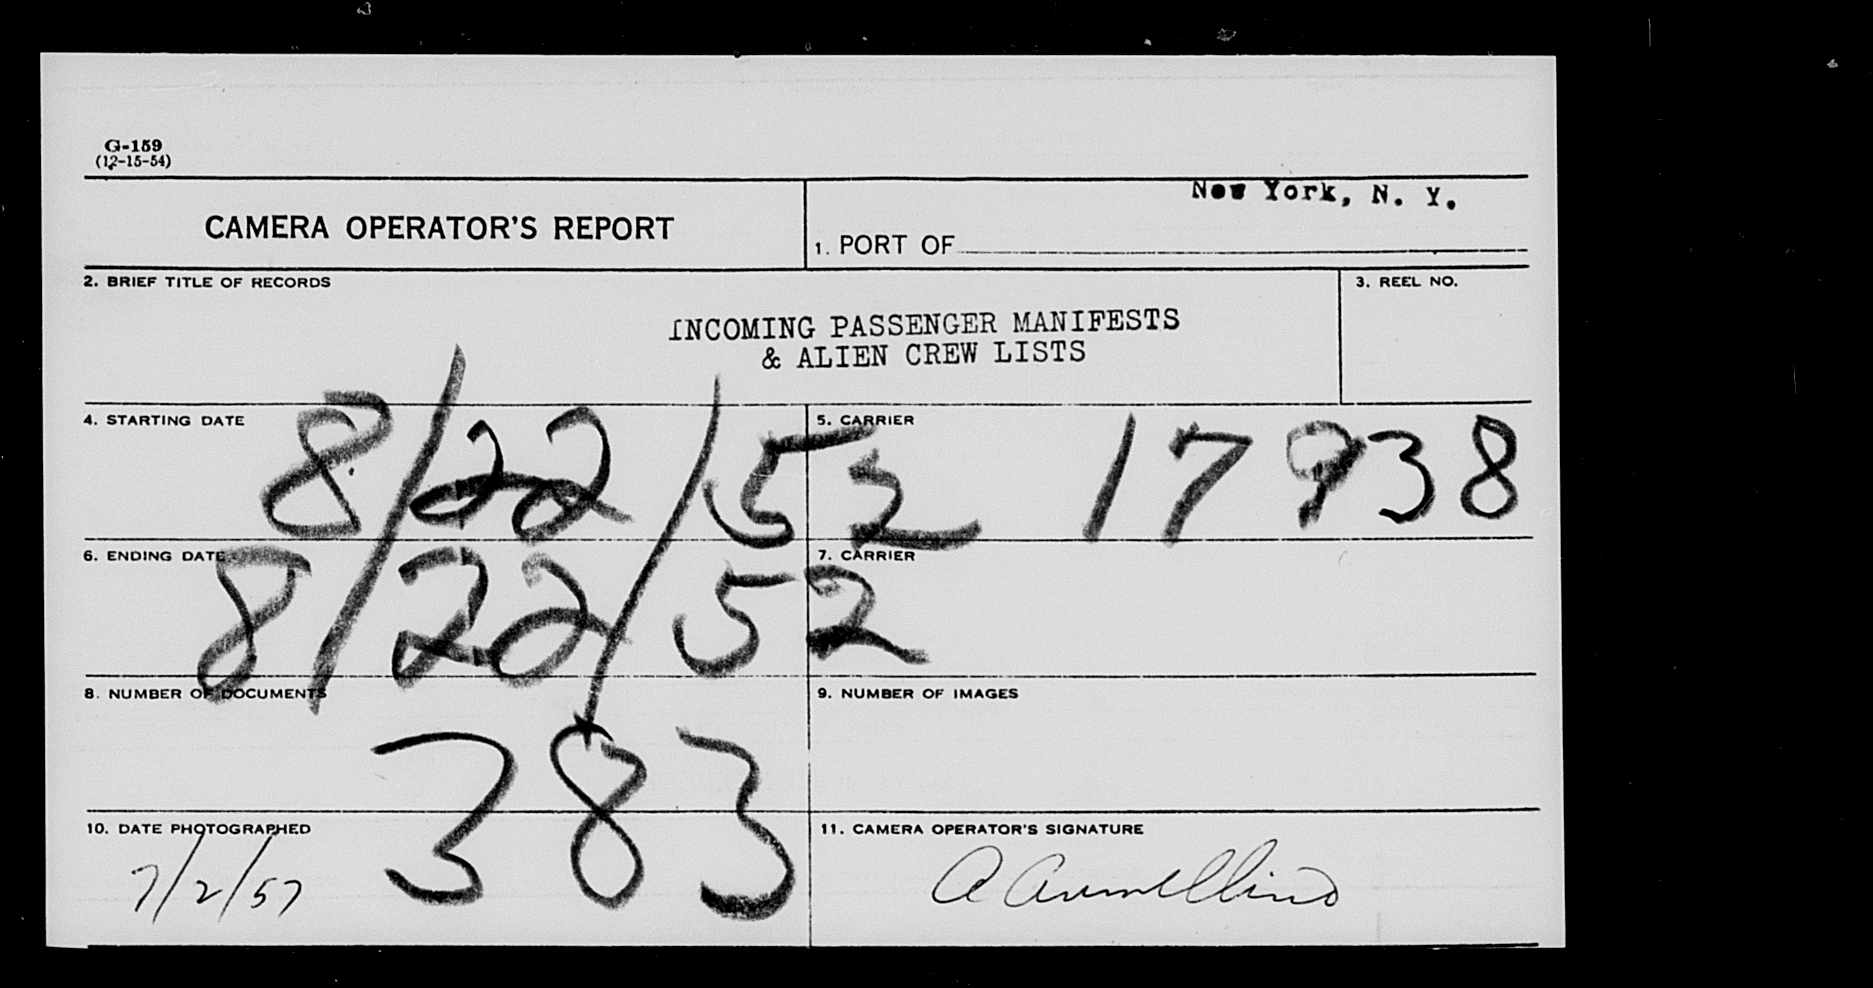 G-159
(12-15-54)
CAMERA OPERATOR'S REPORT
New York, N. Y.
1. PORT OF
2. BRIEF TITLE OF RECORDS
INCOMING PASSENGER MANIFESTS
& ALIEN CREW LISTS
3. REEL NO.
4. STARTING DATE
8/22/52
5. CARRIER
17938
6. ENDING DATE
8/22/52
7. CARRIER
8. NUMBER OF DOCUMENTS
383
9. NUMBER OF IMAGES
10. DATE PHOTOGRAPHED
7/2/57
11. CAMERA OPERATOR'S SIGNATURE